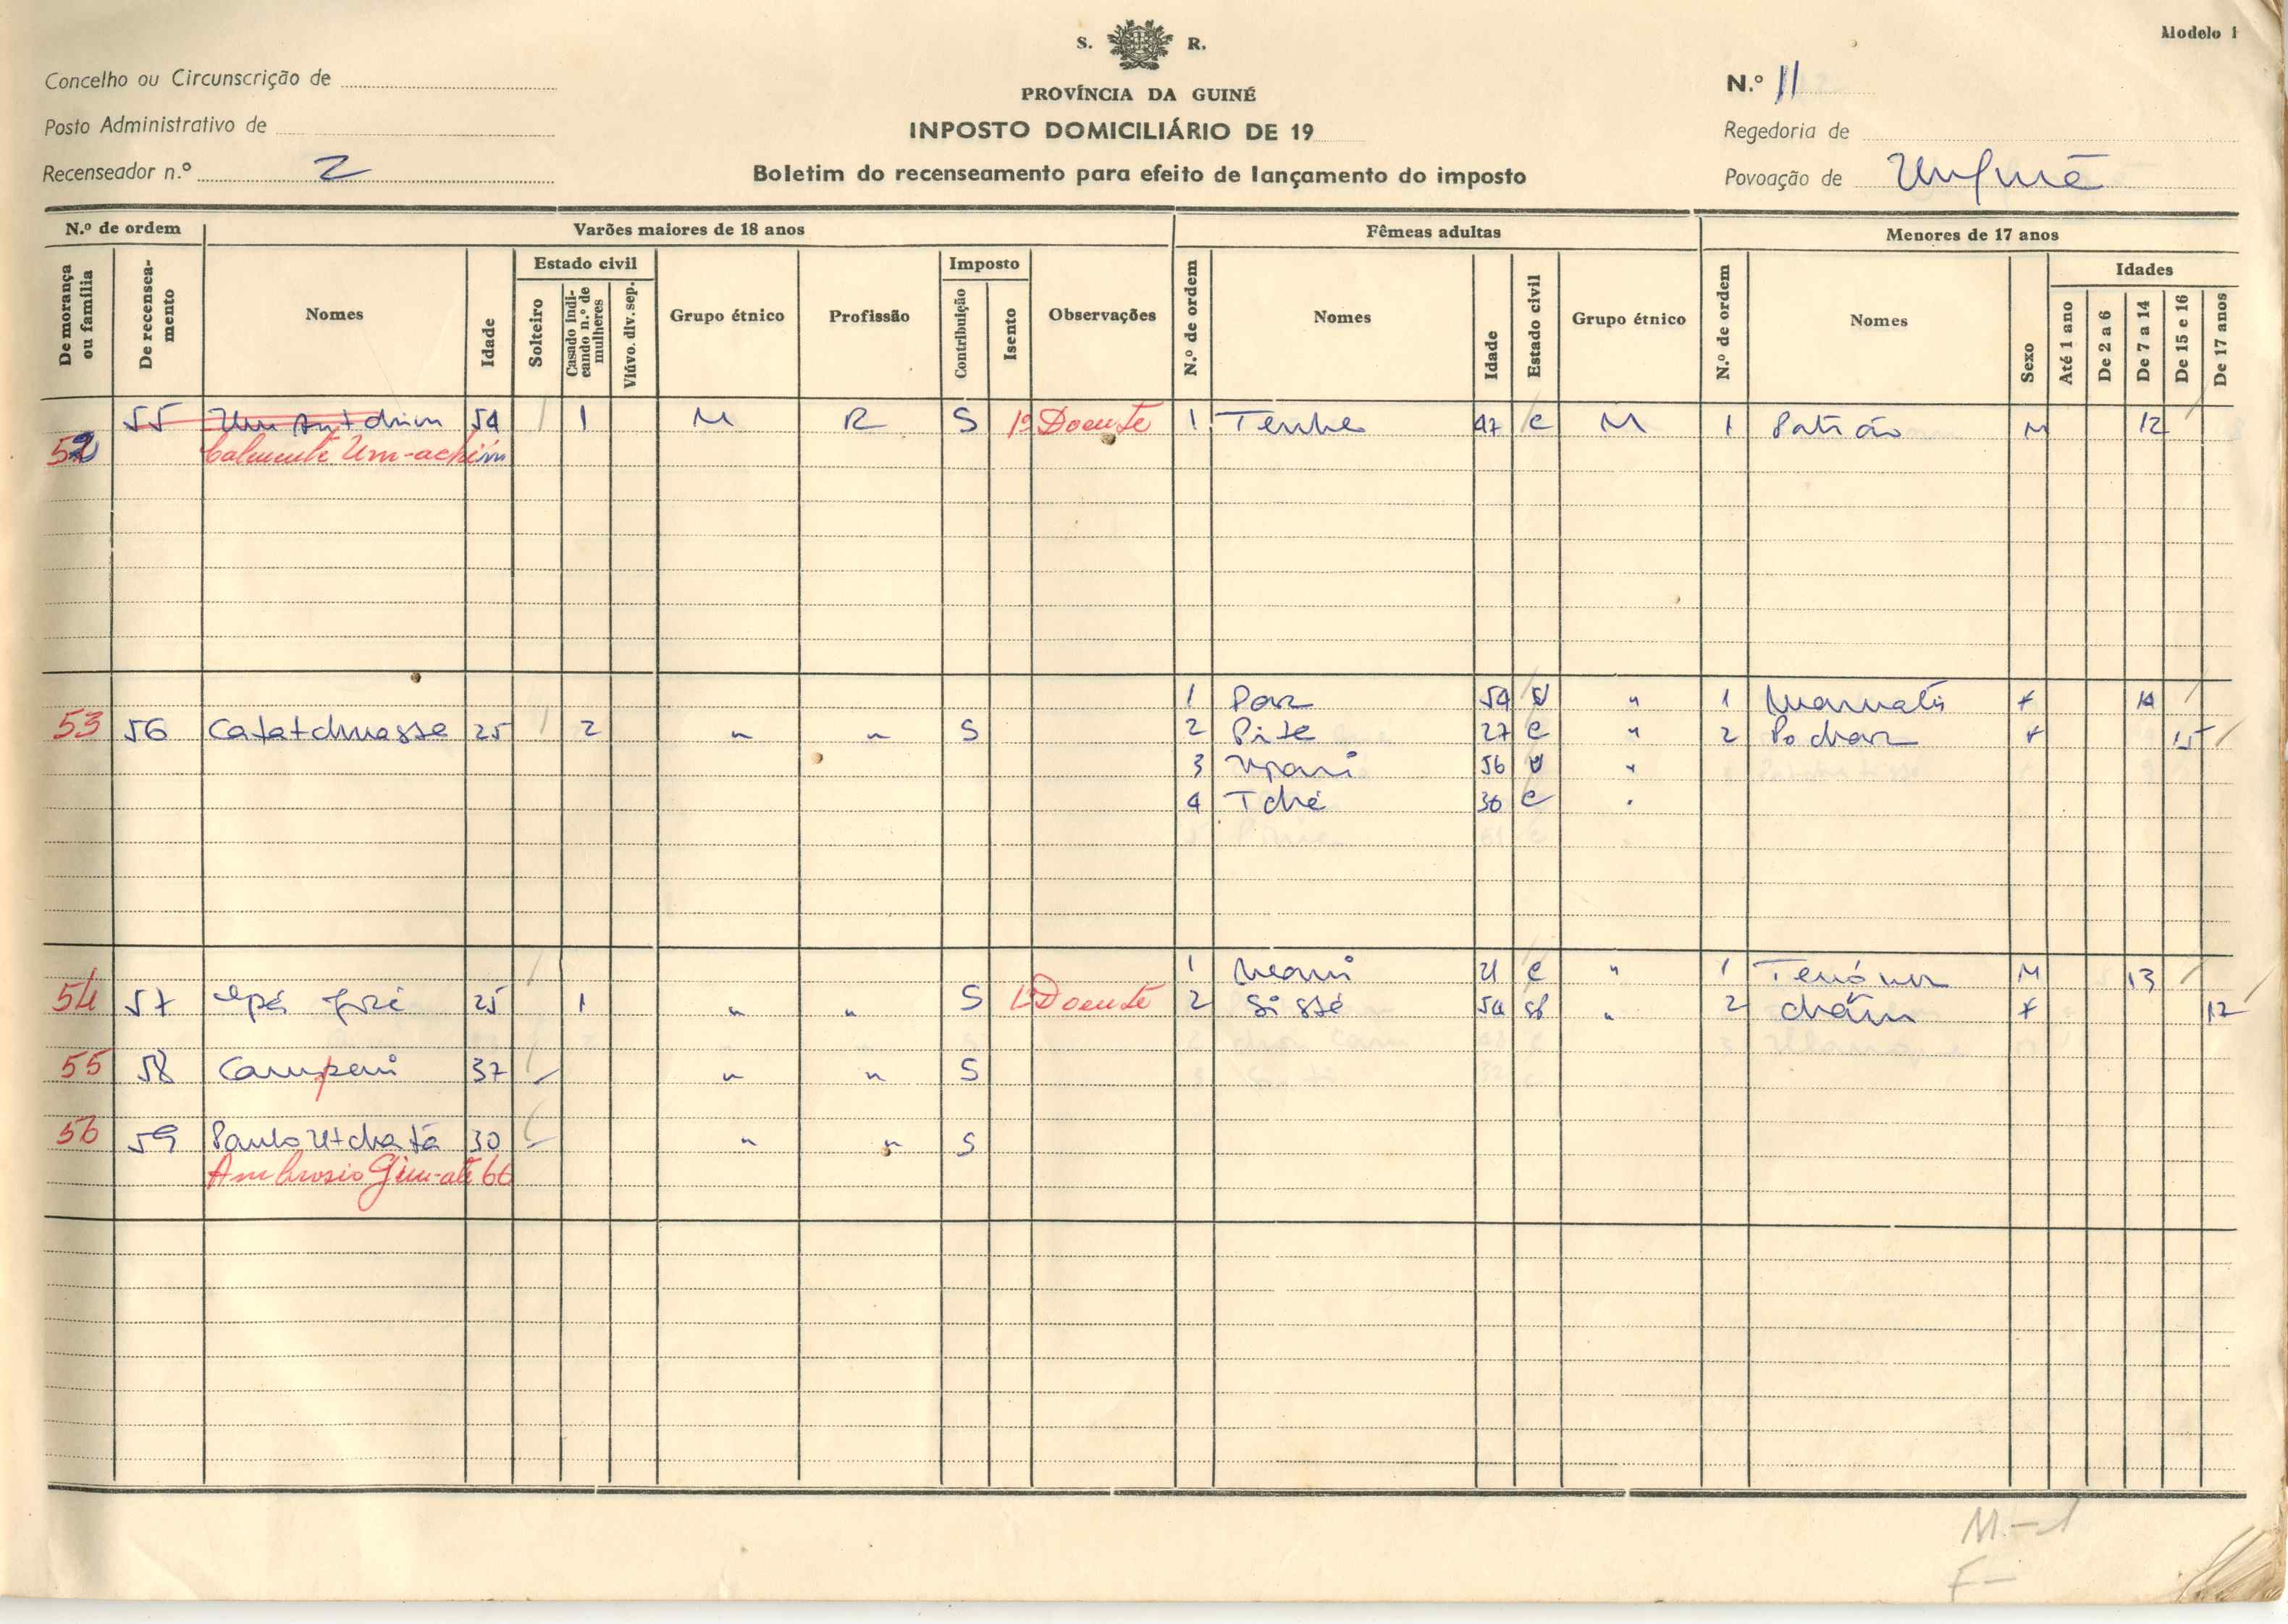 Modelo 1
S. R.
Concelho ou Circunscrição de
PROVÍNCIA DA GUINÉ
N.º 11
Posto Administrativo de
INPOSTO DOMICILIÁRIO DE 19
Regedoria de
Recenseador n.º 2
Boletim do recenseamento para efeito de lançamento do imposto
Povoação de
N.º de ordem Varões maiores de 18 anos Fêmeas adultas Menores de 17 anos
De morança ou família De recenseamento Nomes Idade Estado civil Solteiro Casado indicando n.º de mulheres Viúvo. div. sep. Grupo étnico Profissão Imposto Contribuição Isento Observações N.º de ordem Nomes Idade Estado civil Grupo étnico N.º de ordem Nomes Sexo Idades Até 1 ano De 2 a 6 De 7 a 14 De 15 e 16 De 17 anos
55 54 1 M R S Doente 1 Tenhe 47 C M 1 Patrão M 12
52 Um-achim
1 54 " 1
53 56 Catatchuasse 25 2 " " S 2 Pite 27 C " 2 15
3 56 "
4 Tché 30 C
1 21 C " 1 M 13
54 57 25 1 " " S Doente 2 Sissé 54 " 2 17
55 58 Campeni 37 " " S
56 59 Paulo Utchatá 30 " " S
Ambrosio 66
M.-1
F-